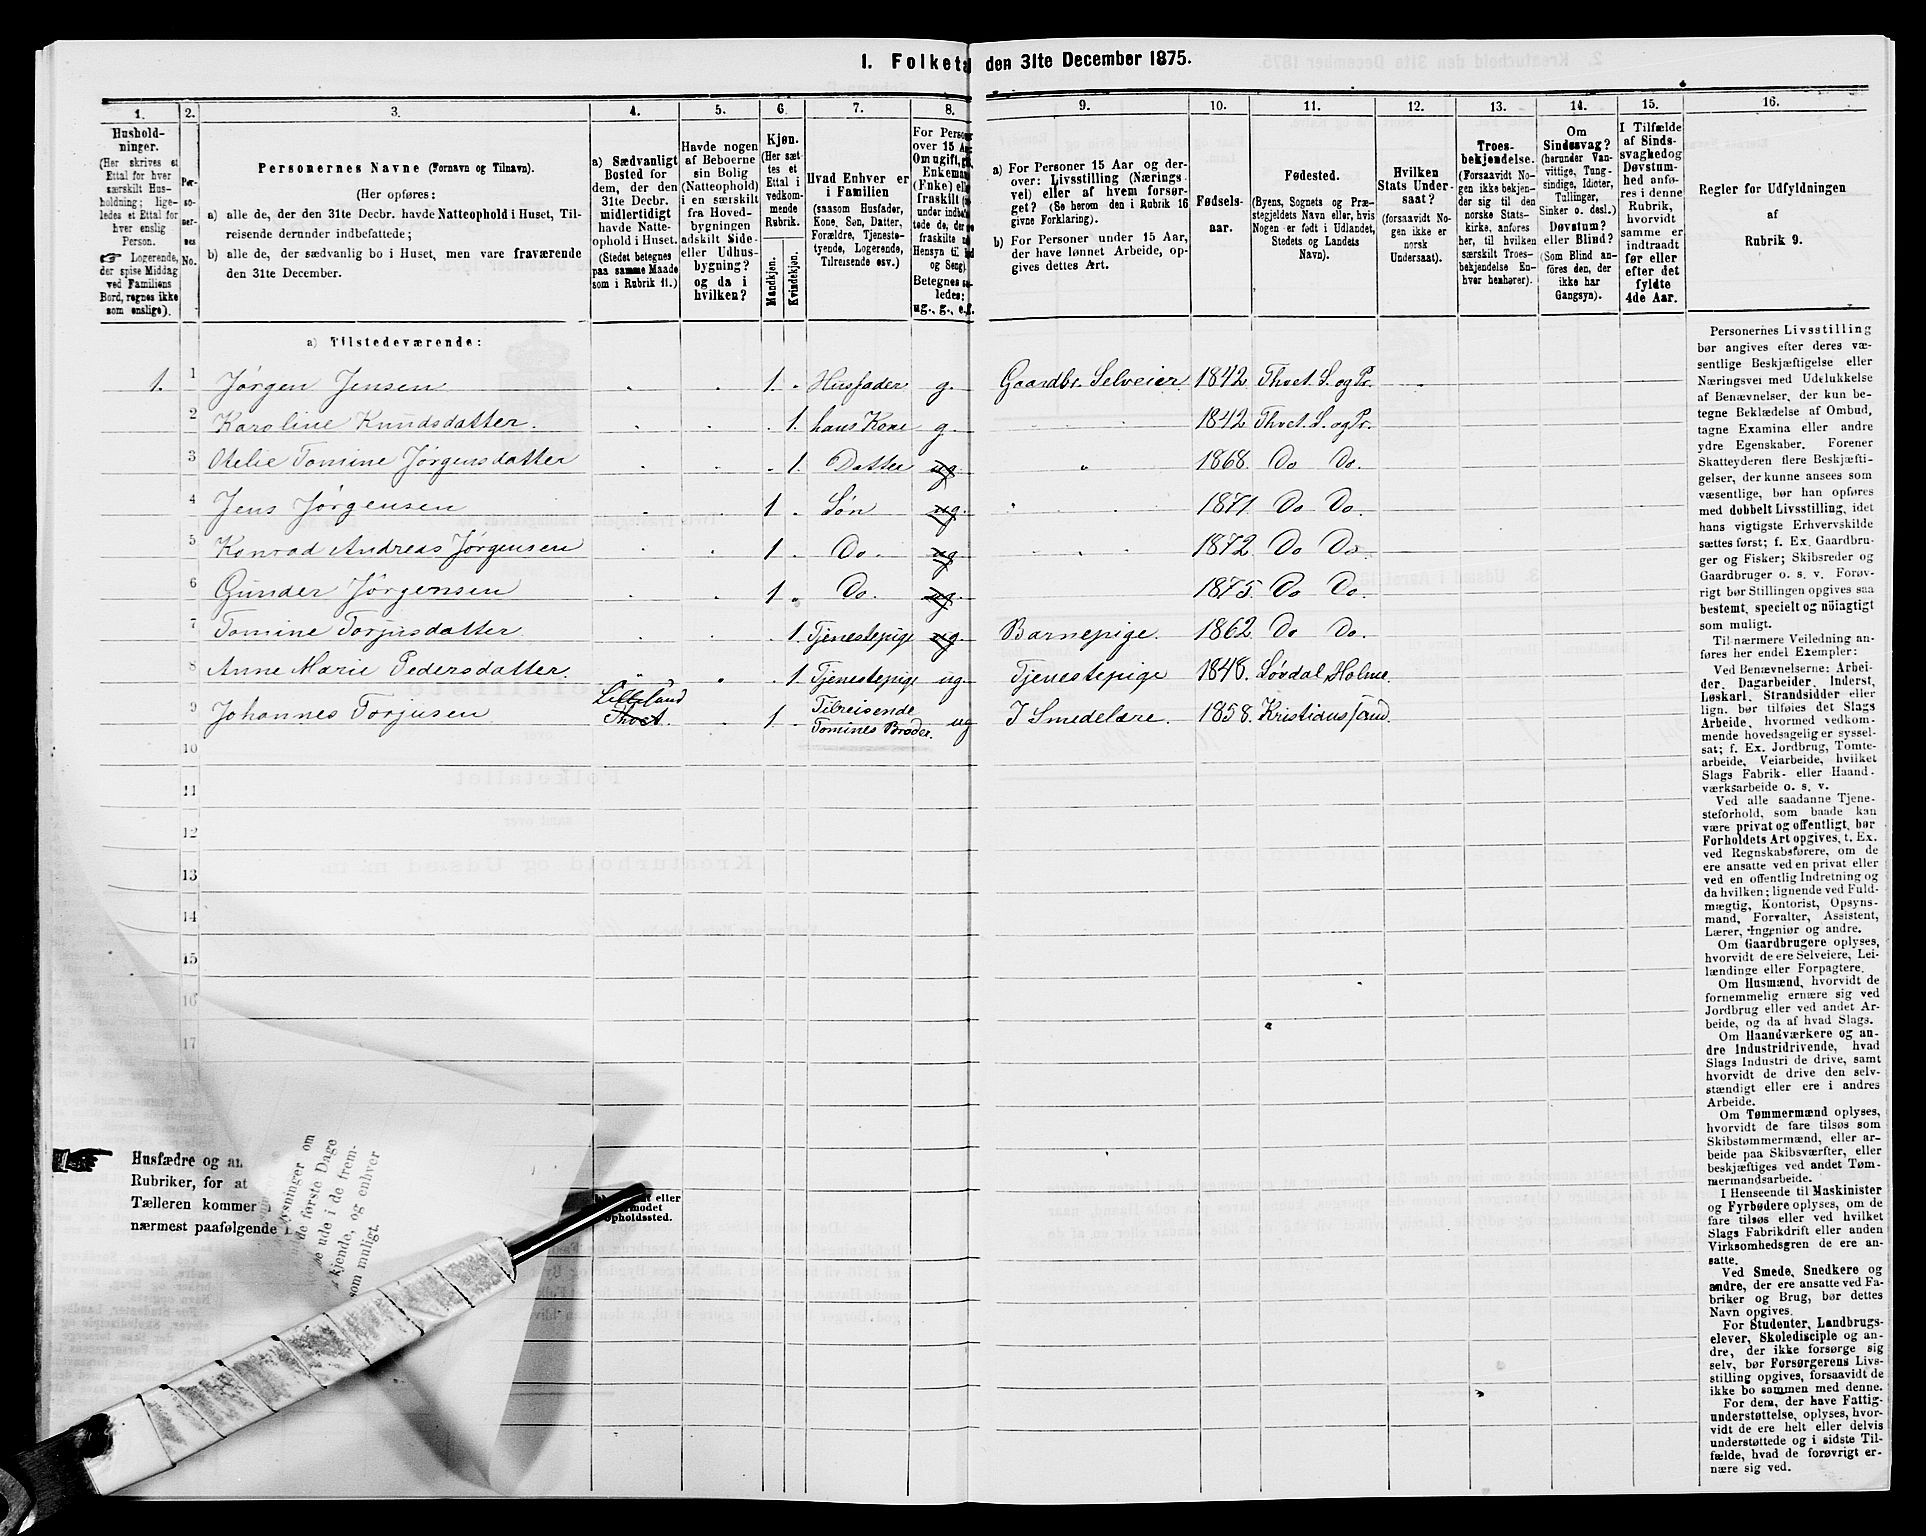 I. Folketa den 31te December 1875.
1. 2. 3. 4. 5. 6. 7. 8. 9. 10. 11. 12. 13. 14. 15. 16.
Hushold-
ninger.
(Her skrives et
Ettal for hver
særskilt Hus-
holdning; lige-
ledes et Ettal for
hver enslig
Person.
☞ Logerende,
der spise Middag
ved Familiens
Bord, regnes ikke
som enslige).
Per-
so-
ner-
nes
No.
Personernes Navne (Fornavn og Tilnavn).
(Her opføres:
a) alle de, der den 31te Decbr. havde Natteophold i Huset, Til-
reisende derunder indbefattede;
b) alle de, der sædvanlig bo i Huset, men vare fraværende
den 31te December.
a) Sædvanligt
Bosted for
dem, der den
31te Decbr.
midlertidigt
havde Natte-
ophold i Huset.
(Stedet betegnes
paa samme Maade
som i Rubrik 11.)
Havde nogen
af Beboerne
sin Bolig
(Natteophold)
i en særskilt
fra Hoved-
bygningen
adskilt Side-
eller Udhus-
bygning?
og da i
hvilken?
Kjøn.
(Her sæt-
tes et
Ettal i
vedkom-
mende
Rubrik.
Mandkjøn.
Kvindekjøn.
Hvad Enhver er
i Familien
(saasom Husfader,
Kone, Søn, Datter,
Forældre, Tjeneste-
tyende, Logerende,
Tilreisende osv.)
For Person
over 15 Aa
Om ugift, gi
Enkemæn
(Enke) elle
fraskilt (
under indbe
tede de, de
fraskilte
Hensyn til
og Seng).
Betegnes sa
ledes:
ug., g., e., f.
a) For Personer 15 Aar og der-
over: Livsstilling (Nærings-
vei) eller af hvem forsør-
get? (Se herom den i Rubrik 16
givne Forklaring).
b) For Personer under 15 Aar,
der have lønnet Arbeide, op-
gives dettes Art.
Fødsels-
aar.
Fødested.
(Byens, Sognets og Præ-
stegjeldets Navn eller, hvis
Nogen er født i Udlandet,
Stedets og Landets
Navn).
Hvilken
Stats Under-
saat?
(forsaavidt No-
gen ikke er
norsk
Undersaat).
Troes-
bekjendelse.
(Forsaavidt No-
gen ikke bekjen-
der sig til den
norske Stats-
kirke, anføres
her, til hvilken
særskilt Troes-
bekjendelse En-
hver henhører).
Om
Sindssvag?
(herunder Van-
vittige, Tung-
sindige, Idioter,
Tullinger,
Sinker o. desl.)
Døvstum?
eller Blind?
(Som Blind an-
føres den, der
ikke har
Gangsyn).
I Tilfælde
af Sinds-
svaghed og
Døvstum-
hed anfø-
res i denne
Rubrik,
hvorvidt
samme er
indtraadt
før eller
efter det
fyldte
4de Aar.
Regler for Udfyldningen
af
Rubrik 9.
a) Tilstedeværende:
1. 1 Jørgen Jensen 1. Husfader g. Gaardbr. Selveier 1842 Thvet S. og Pr.
2 Karoline Knudsdatter. 1. hans Kone g. 1842 Thvet. S. og Pr.
3 Otelie Tomine Jørgensdatter 1. Datter ug 1868. Do Do.
4 Jens Jørgensen 1 Søn ug. 1871. Do Do.
5 Konrad Andreas Jørgensen 1 Do. ug 1872 Do Do.
6 Gunder Jørgensen 1 Do. ug 1875. Do Do.
7 Tomine Torjusdatter 1. Tjenestepige ug. Barnepige. 1862 Do Do.
8 Anne Marie Pedersdatter. 1. Tjenestepige ug. Tjenestepige 1848. Løvdal Holme
9 Johannes Torjusen Thvet. 1 Tilreisende Tomines Broder. ug I Smedelære. 1858. Kristianssand.
10
11
12
13
14
15
16
17
Husfædre og an
Rubriker, for at
Tælleren kommer
nærmest paafølgende
lysninger om
de første Dage
ude i de trem-
kjende, og enhver
som muligt.
t eller
modet
opholdssted.
Personernes Livsstilling
bør angives efter deres væ-
sentlige Beskjæftigelse eller
Næringsvei med Udelukkelse
af Benævnelser, der kun be-
tegne Beklædelse af Ombud,
tagne Examina eller andre
ydre Egenskaber. Forener
Skatteyderen flere Beskjæfti-
gelser, der kunne ansees som
væsentlige, bør han opføres
med dobbelt Livsstilling, idet
hans vigtigste Erhvervskilde
sættes først; f. Ex. Gaardbru-
ger og Fisker; Skibsreder og
Gaardbruger o. s. v. Forøv-
rigt bør Stillingen opgives saa
bestemt, specielt og nöiagtigt
som muligt.
Til nærmere Veiledning an-
føres her endel Exempler:
Ved Benævnelserne: Arbei-
der, Dagarbeider, Inderst,
Løskarl, Strandsidder eller
lign. bør tilføies det Slags
Arbeide, hvormed vedkom-
mende hovedsagelig er syssel-
sat; f. Ex. Jordbrug, Tomte-
arbeide, Veiarbeide, hvilket
Slags Fabrik- eller Haand-
værksarbeide o. s. v.
Ved alle saadanne Tjene-
steforhold, som baade kan
være privat og offentligt, bør
Forholdets Art opgives, t. Ex.
ved Regnskabsførere, om de
ere ansatte ved en privat eller
ved en offentlig Indretning og
da hvilken; lignende ved Fuld-
mægtig, Kontorist, Opsyns-
mand, Forvalter, Assistent,
Lærer, Ingeniør og andre.
Om Gaardbrugere oplyses,
hvorvidt de ere Selveiere, Lei-
lændinge eller Forpagtere.
Om Husmænd, hvorvidt de
fornemmelig ernære sig ved
Jordbrug eller ved andet Ar-
beide, og da af hvad Slags.
Om Haandværkere og an-
dre Industridrivende, hvad
Slags Industri de drive, samt
hvorvidt de drive den selv-
stændigt eller ere i andres
Arbeide.
Om Tømmermænd oplyses,
hvorvidt de fare tilsøs som
Skibstømmermænd, eller ar-
beide paa Skibsværfter, eller
beskjæftiges ved andet Tøm-
mermandsarbeide.
I Henseende til Maskinister
og Fyrbødere oplyses, om de
fare tilsøs eller ved hvilket
Slags Fabrikdrift eller anden
Virksomhedsgren de ere an-
satte.
Ved Smede, Snedkere og
andre, der ere ansatte ved Fa-
briker og Brug, bør dettes
Navn opgives.
For Studenter, Landbrugs-
elever, Skoledisciple og an-
dre, der ikke forsørge sig
selv, bør Forsørgerens Livs-
stilling opgives, forsaavidt de
ikke bo sammen med denne.
For dem, der have Fattig-
understøttelse, oplyses, hvor-
vidt de ere helt eller delvis
understøttede og i sidste Til-
fælde, hvad de forøvrigt er-
nære sig ved.